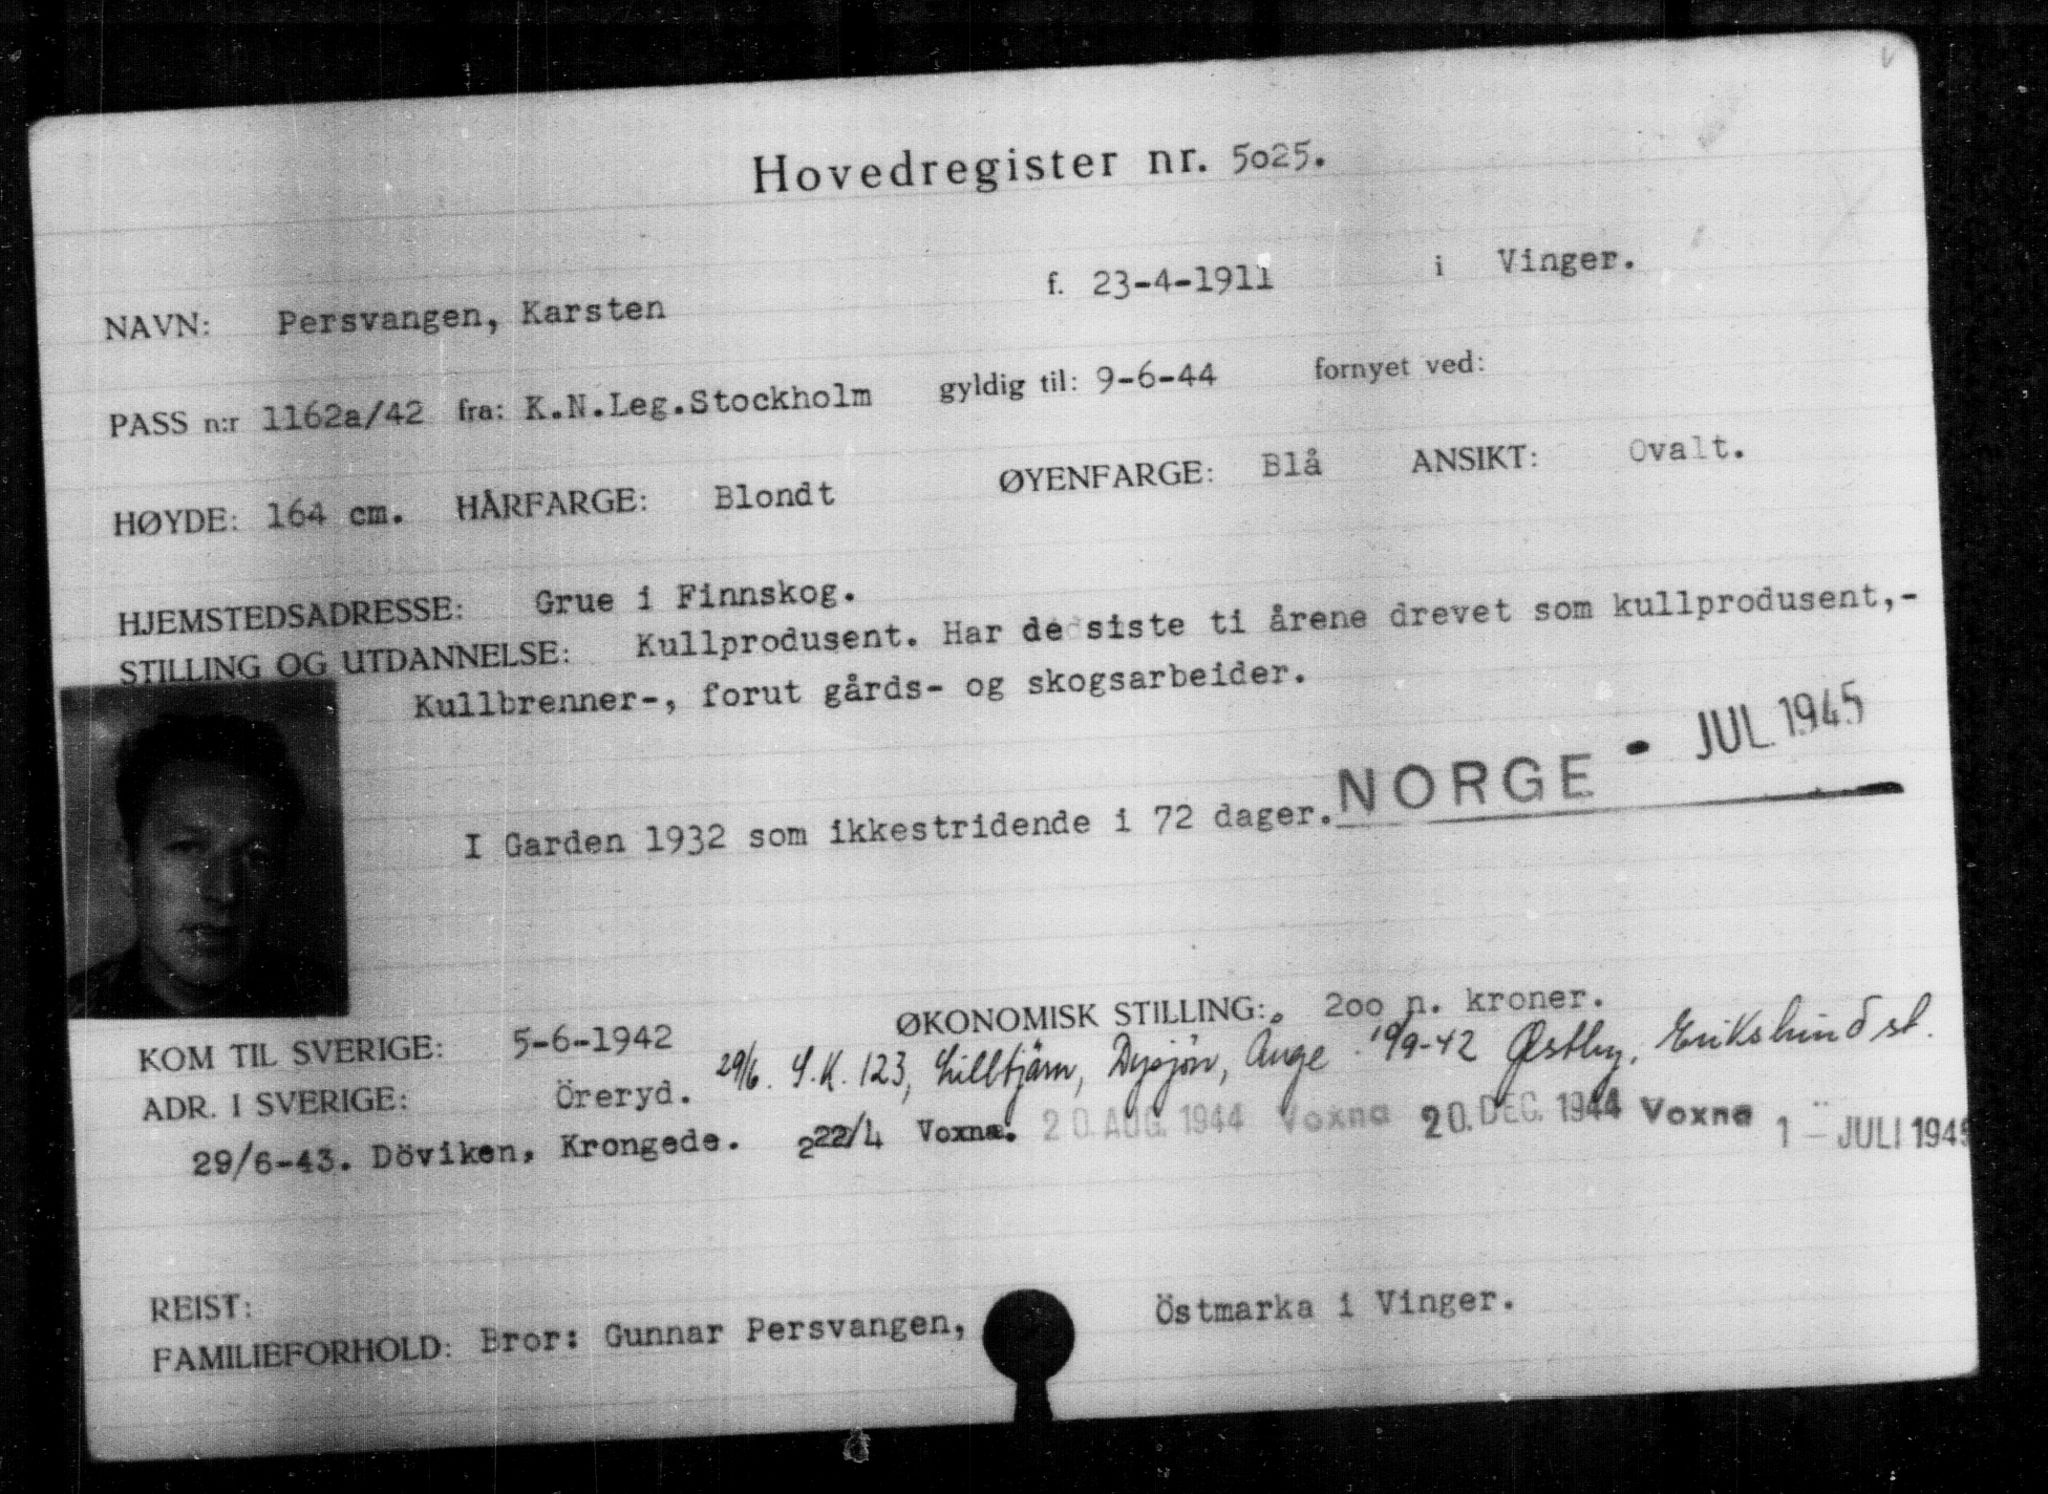 Hovedregister nr. 5025.
NAVN: Persvangen, Karsten f. 23-4-1911 i Vinger.
PASS n:r 1162a/42 fra: K.N.Leg.Stockholm gyldig til: 9-6-44 fornyet ved:
HØYDE: 164 cm. HÅRFARGE: Blondt ØYENFARGE: Blå ANSIKT: Ovalt.
HJEMSTEDSADRESSE: Grue i Finnskog.
STILLING OG UTDANNELSE: Kullprodusent. Har de siste ti årene drevet som kullprodusent,-
Kullbrenner-, forut gårds- og skogsarbeider.
NORGE - JUL. 1945
I Garden 1932 som ikkestridende i 72 dager.
ØKONOMISK STILLING: 200 n. kroner.
KOM TIL SVERIGE: 5-6-1942
ADR. I SVERIGE: Öreryd. 29/6. S.K. 123, Lilltjärn, Dysjön, Ånge. 19/9-42 Østby, Erikslund st.
29/6-43. Döviken, Krongede. 22/4 Voxna. 20. AUG. 1944 Voxna 20. DEC. 1944 Voxna 1 - JULI 1945
REIST:
FAMILIEFORHOLD: Bror: Gunnar Persvangen, Östmarka i Vinger.